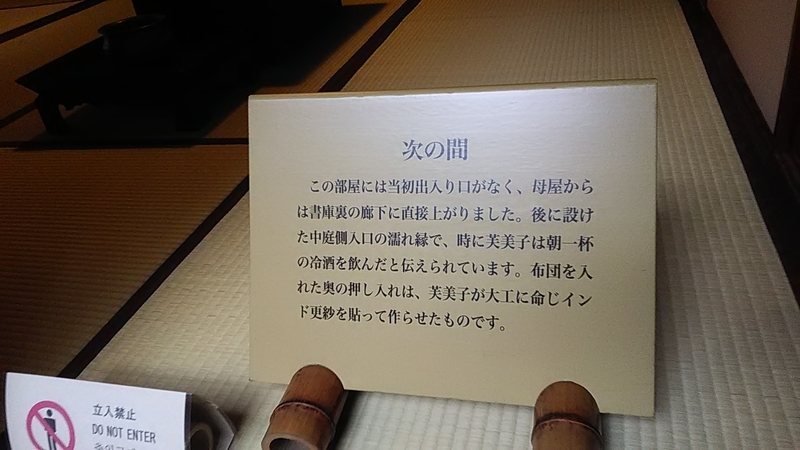 次の間
この部屋には当初出入り口がなく、母屋から
は書庫裏の廊下に直接上がりました。後に設け
た中庭側入口の濡れ縁で、時に芙美子は朝一杯
の冷酒を飲んだと伝えられています。布団を入
れた奥の押し入れは、芙美子が大工に命じイン
ド更紗を貼って作らせたものです。
立入禁止
DO NOT ENTER